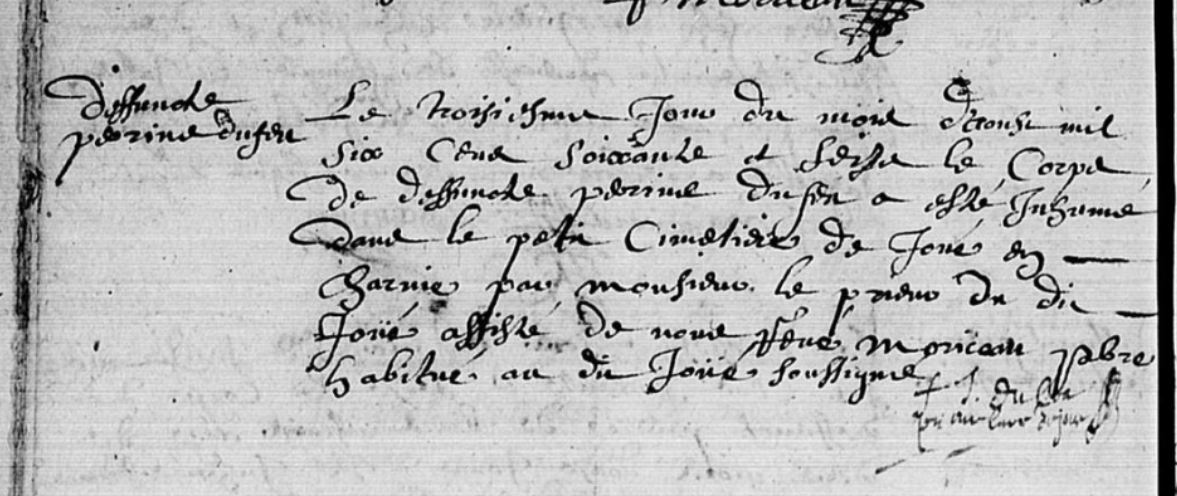 deffuncte
perrine dufeu
Le troisiesme Jour du mois daoust mil
six Cens soixante et seize le Corps
de deffuncte perrine dufeu a esté Inhumé
dans le petit Cimetiere de Joué en
Charnie par monsieur le prieur du dit
Joüé assisté de nous René moriceau pbre
habitué au dit Joüé soussigné